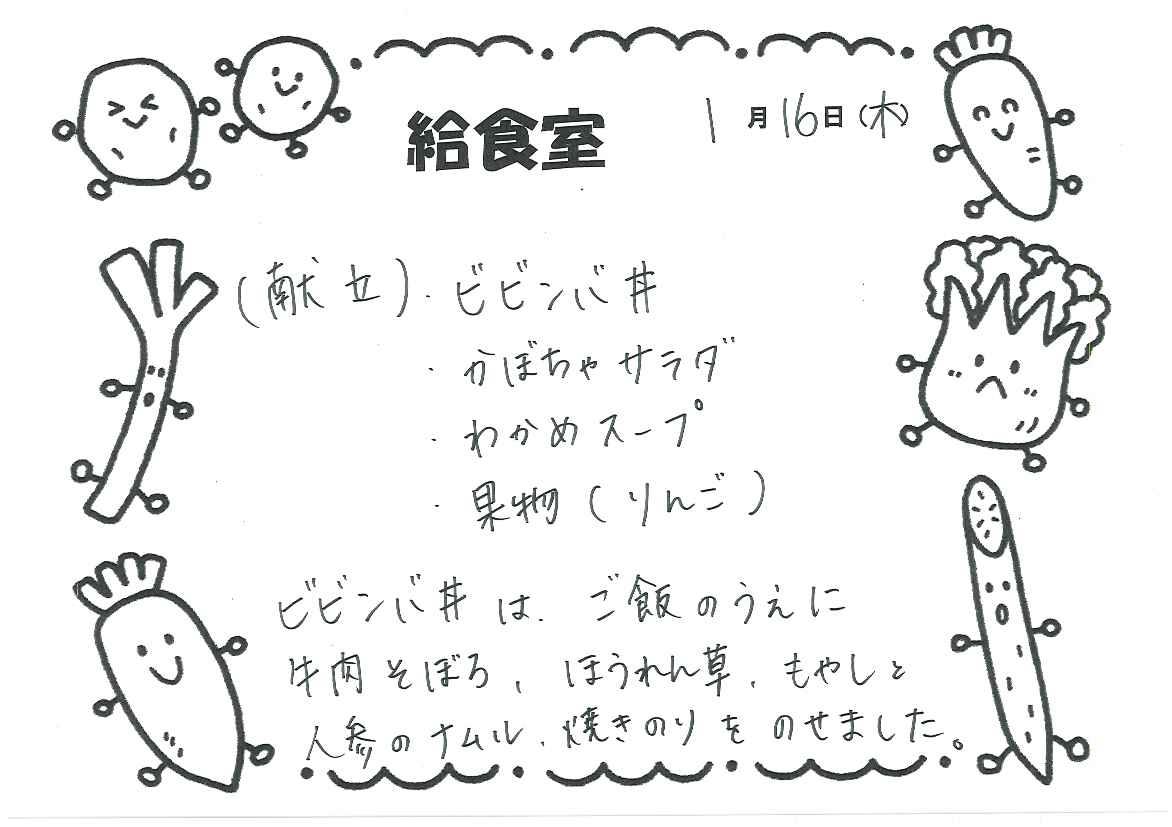 給食室
1月16日(木)
(献立)・ビビンバ丼
・かぼちゃサラダ
・わかめスープ
・果物(りんご)
ビビンバ丼は、ご飯のうえに
牛肉そぼろ、ほうれん草、もやしと
人参のナムル、焼きのりをのせました。